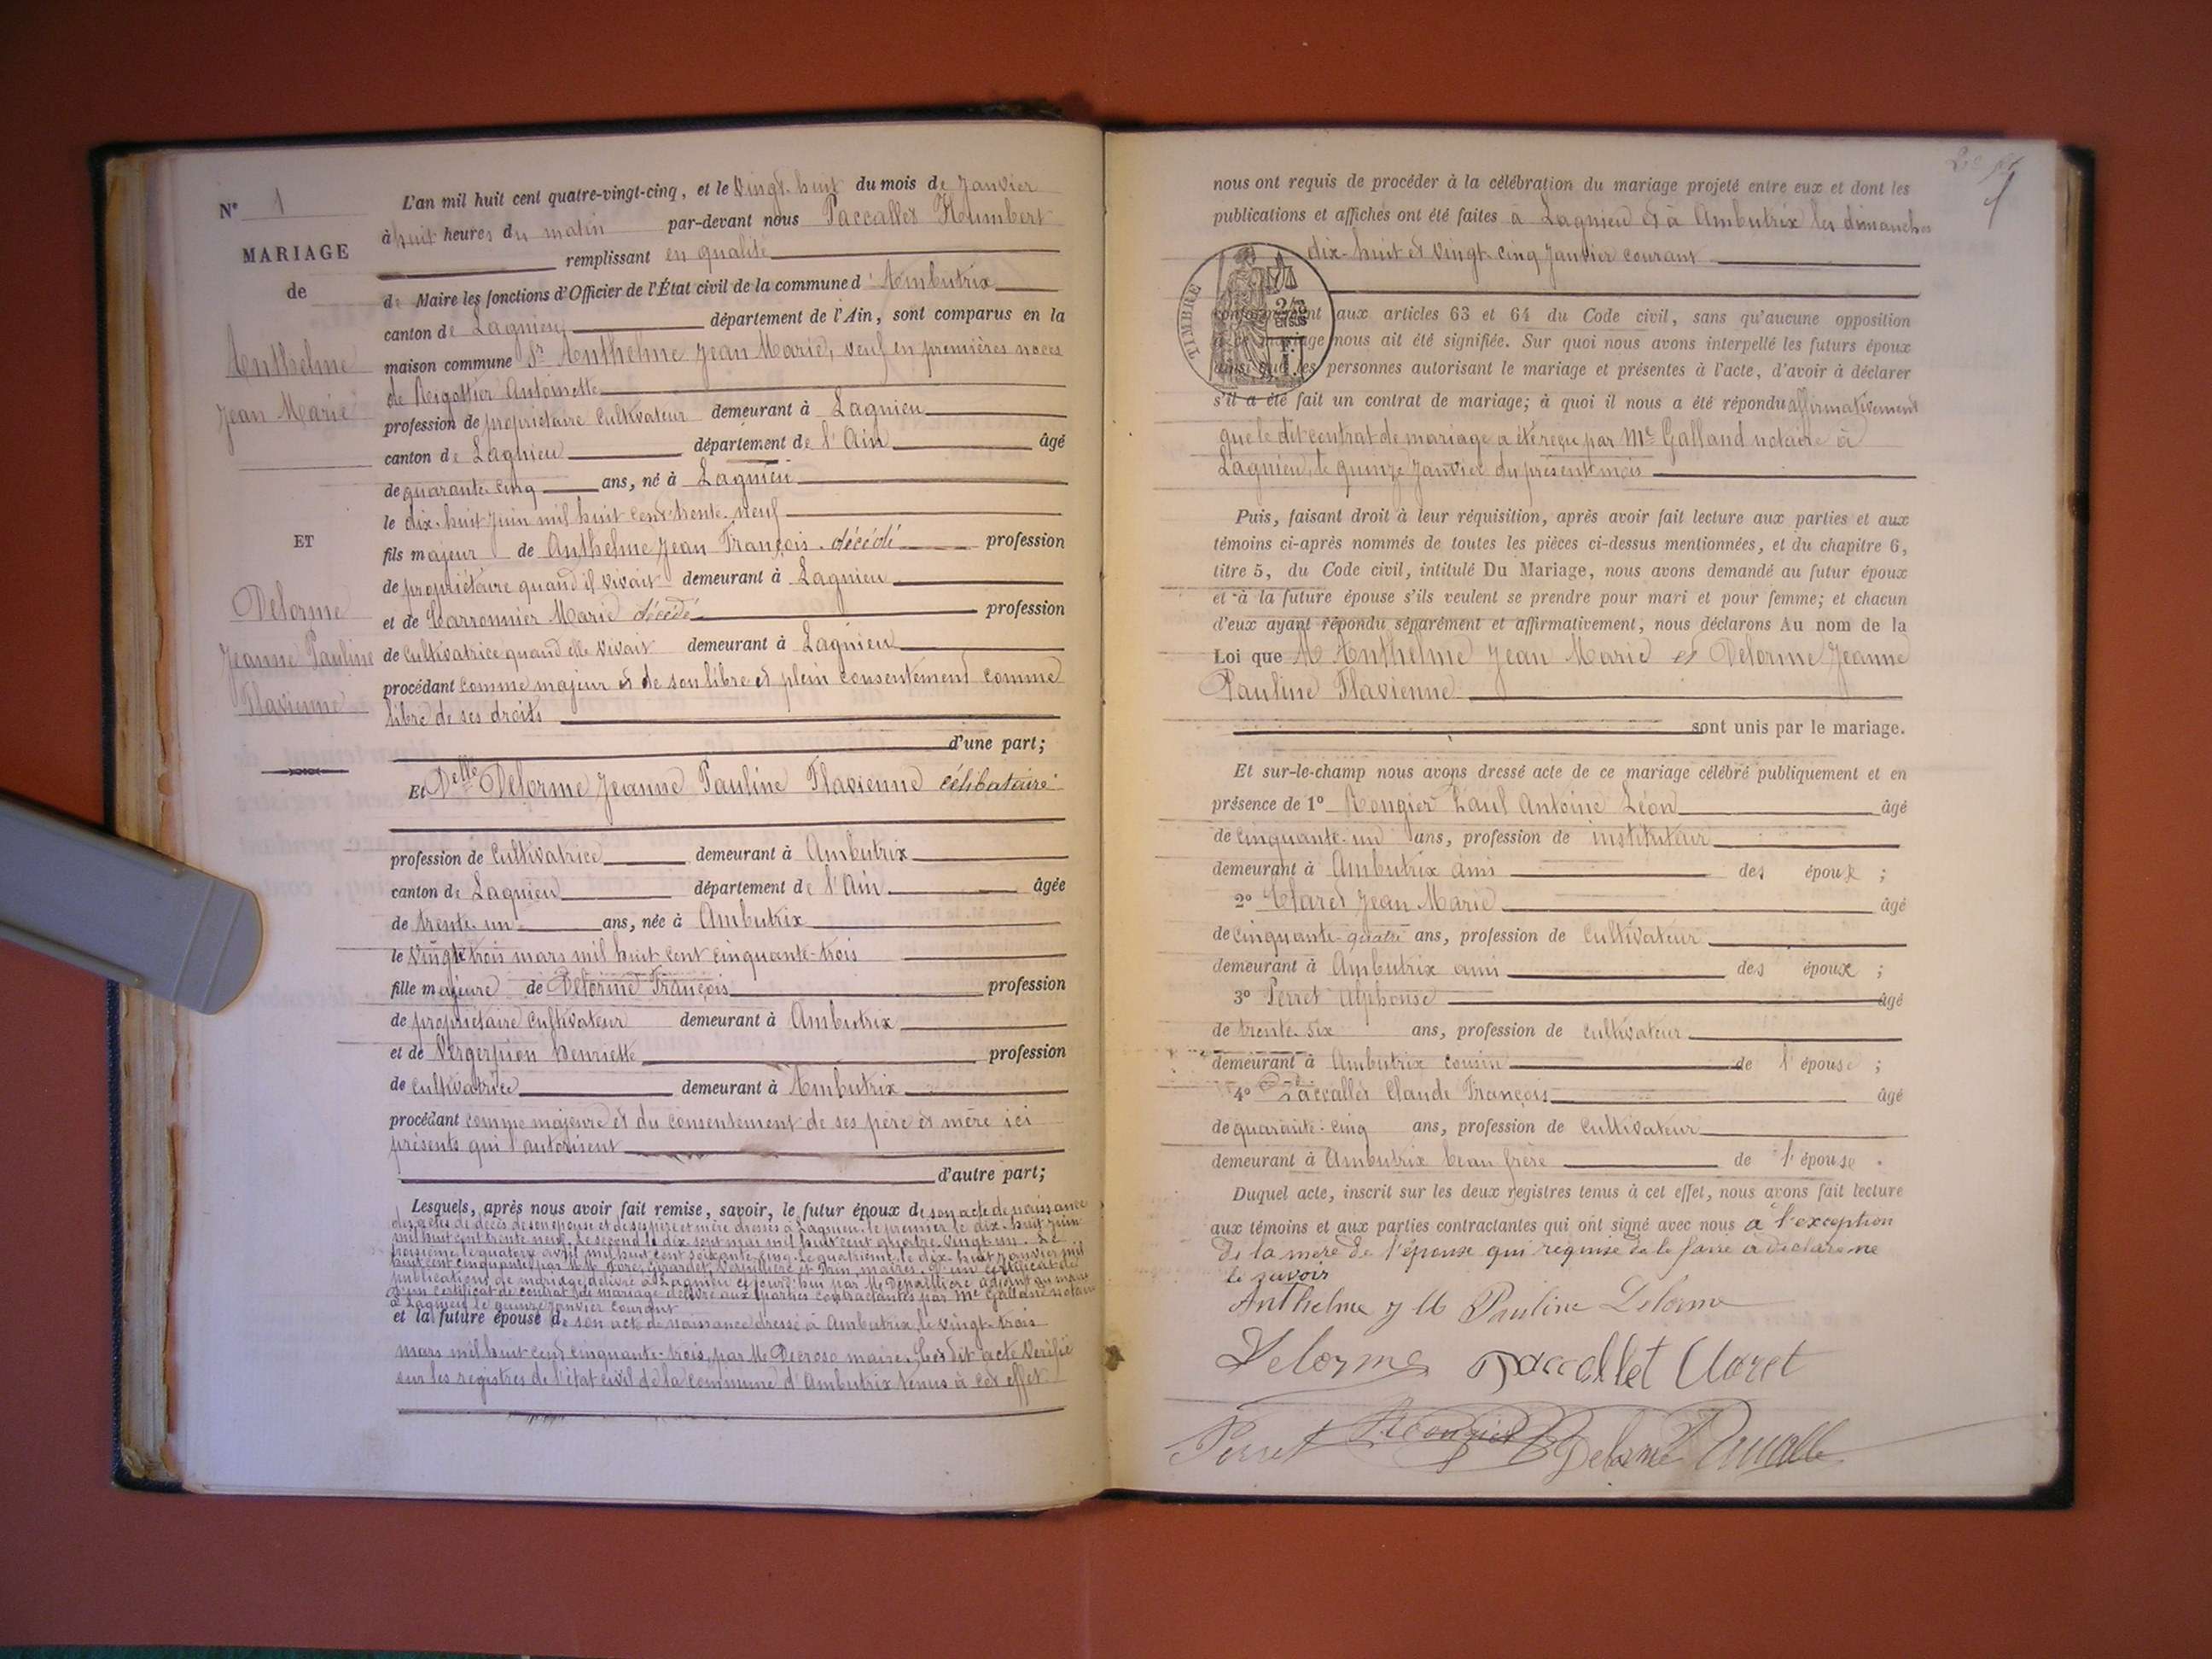 N° 1
MARIAGE
de
Anthelme
Jean Marie
ET
Delorme
Jeanne Pauline
Flavienne
L'an mil huit cent quatre-vingt-cinq, et le vingt-huit du mois de Janvier
à huit heures du matin par-devant nous Paccallet Humbert
remplissant en qualité
de Maire les fonctions d'Officier de l'État civil de la commune d'Ambutrix
canton de Lagnieu département de l'Ain, sont comparus en la
maison commune Sr Anthelme Jean Marie, veuf en premières noces
de Rigottier Antoinette
profession de propriétaire cultivateur demeurant à Lagnieu
canton de Lagnieu département de l'Ain âgé
de quarante-cinq ans, né à Lagnieu
le dix-huit Juin mil huit cent trente-neuf
fils majeur de Anthelme Jean François décédé profession
de propriétaire quand il vivait demeurant à Lagnieu
et de Marie décédé profession
de cultivatrice quand elle vivait demeurant à Lagnieu
procédant comme majeur et de son libre et plein consentement comme
libre de ses droits
d'une part;
Et Delle Delorme Jeanne Pauline Flavienne célibataire
profession de cultivatrice demeurant à Ambutrix
canton de Lagnieu département de l'Ain âgée
de trente-un ans, née à Ambutrix
le vingt-trois mars mil huit cent cinquante-trois
fille majeure de Delorme François profession
de propriétaire cultivateur demeurant à Ambutrix
et de Henriette profession
de cultivatrice demeurant à Ambutrix
procédant comme majeure et du consentement de ses père et mère ici
présents qui l'autorisent
d'autre part;
Lesquels, après nous avoir fait remise, savoir, le futur époux de son acte de naissance
des actes de décès de son épouse et de ses père et mère dressés à Lagnieu, le premier le dix-huit juin
mil huit cent trente neuf, Le second le dix sept mai mil huit cent quatre-vingt-un. Le
troisième le quatorze avril mil huit cent soixante-cinq. Le quatrième, le dix-huit janvier mil
huit cent cinquante par MM. Girardet, maires. D'un certificat de
publications de mariage délivré à Lagnieu ce jourd'hui par Mr adjoint au maire
d'un certificat de contrat de mariage délivré aux parties contractantes par Me Galland notaire
à Lagnieu le quinze janvier courant
et la future épouse de son acte de naissance dressé à Ambutrix, le vingt-trois
mars mil huit cent cinquante-trois, par Mr Decroso maire. Les dit acte vérifié
sur les registres de l'état civil de la commune d'Ambutrix tenus à cet effet
1
nous ont requis de procéder à la célébration du mariage projeté entre eux et dont les
publications et affiches ont été faites à Lagnieu et à Ambutrix les dimanches
dix-huit et vingt-cinq Janvier courant
TIMBRE
conformément aux articles 63 et 64 du Code civil, sans qu'aucune opposition
à ce mariage nous ait été signifiée. Sur quoi nous avons interpellé les futurs époux
ainsi que les personnes autorisant le mariage et présentes à l'acte, d'avoir à déclarer
s'il a été fait un contrat de mariage; à quoi il nous a été répondu affirmativement
que le dit contrat de mariage a été reçu par Me Galland notaire à
Lagnieu, le quinze Janvier du présent mois
Puis, faisant droit à leur réquisition, après avoir fait lecture aux parties et aux
témoins ci-après nommés de toutes les pièces ci-dessus mentionnées, et du chapitre 6,
titre 5, du Code civil, intitulé Du Mariage, nous avons demandé au futur époux
et à la future épouse s'ils veulent se prendre pour mari et pour femme; et chacun
d'eux ayant répondu séparément et affirmativement, nous déclarons Au nom de la
Loi que M Anthelme Jean Marie et Delorme Jeanne
Pauline Flavienne
sont unis par le mariage.
Et sur-le-champ nous avons dressé acte de ce mariage célébré publiquement et en
présence de 1° Rougier Paul Antoine Léon âgé
de cinquante-un ans, profession de instituteur
demeurant à Ambutrix ami des époux ;
2° Claret Jean Marie âgé
de cinquante-quatre ans, profession de cultivateur
demeurant à Ambutrix ami des époux ;
3° Perret Alphonse âgé
de trente-six ans, profession de cultivateur
demeurant à Ambutrix cousin de l'épouse ;
4° Paccallet Claude François âgé
de quarante-cinq ans, profession de cultivateur
demeurant à Ambutrix beau frère de l'épouse.
Duquel acte, inscrit sur les deux registres tenus à cet effet, nous avons fait lecture
aux témoins et aux parties contractantes qui ont signé avec nous à l'exception
de la mère de l'épouse qui requise de le faire a déclaré ne
le savoir
Anthelme J M Pauline Delorme
Delorme Paccallet Claret
Perret Rougier Delorme